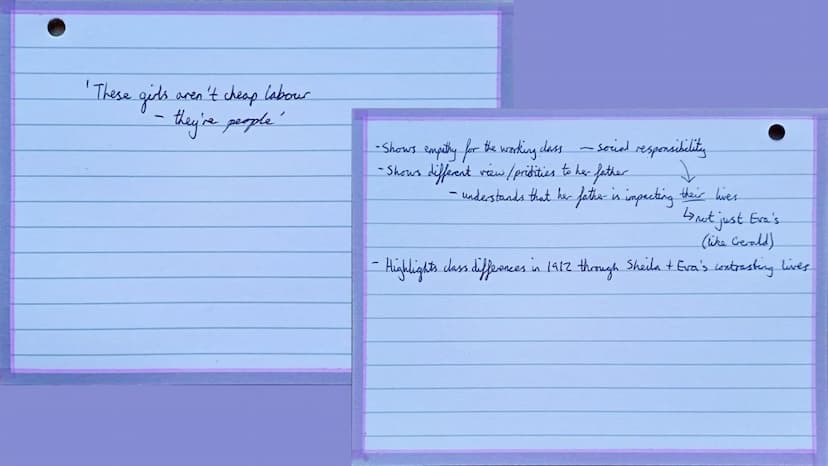 'These girls aren't cheap labour
- they're people'
- Shows empathy for the working class - social responsibility
- Shows different view/priorities to her father
- understands that her father is impacting their lives
↳ not just Eva's
(like Gerald)
- Highlights class differences in 1912 through Sheila + Eva's contrasting lives